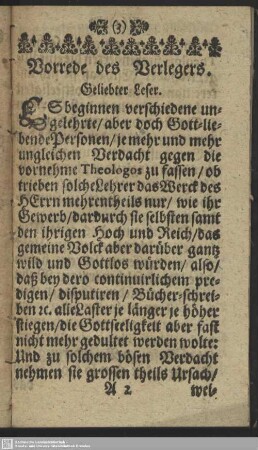 (3)
Vorrede des Verlegers.
Geliebter Leser.
ES beginnen verschiedene un-
gelehrte/ aber doch Gott-lie-
bende Personen/ je mehr und mehr
ungleichen Verdacht gegen die
vornehme Theologos zu fassen/ ob
trieben solche Lehrer das Werck des
HErrn mehrentheils nur/ wie ihr
Gewerb/ dardurch sie selbsten samt
den ihrigen Hoch und Reich/ das
gemeine Volck aber darüber gantz
wild und Gottlos würden/ also/
daß bey dero continuirlichem pre-
digen/ disputiren/ Bücher-schrei-
ben ꝛc. alle Laster je länger je höher
stiegen/ die Gottseeligkeit aber fast
nicht mehr gedultet werden wolte:
Und zu solchem bösen Verdacht
nehmen sie grossen theils Ursach/
A 2 wei-